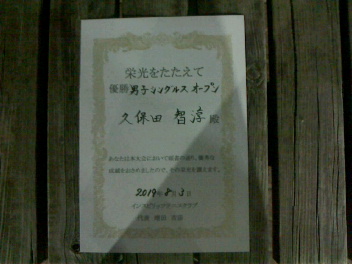 栄光をたたえて
優勝 男子シングルス オープン
久保田 智淳 殿
あなたは本大会において頭書の通り、優秀な
成績をおさめられましたので、その栄光を讃えます。
2019年8月5日